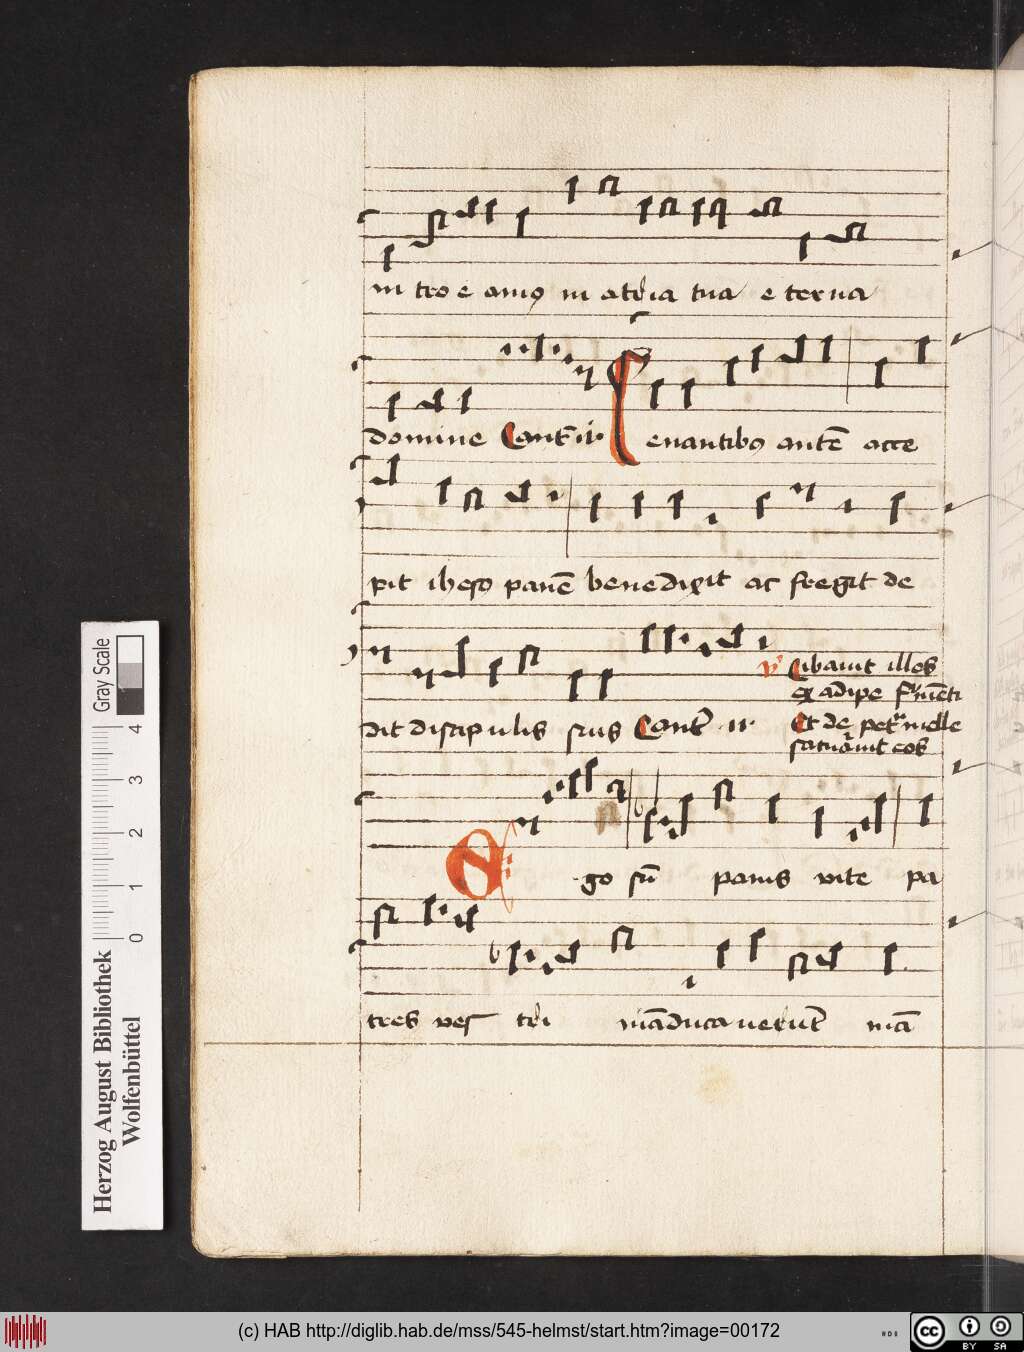 in tro e amꝰ in at̉ia tua e terna
domine Cant̄ ii· Cenantibꝰ autē acce
pit ihesꝰ panē benedixit ac fregit de
dit discip ulis suis Cant̄ ·ii·
v̓ Cibauit illos
ex adipe frumēti
Et de petra melle
saturauit eos
Ego sū panis vite pa
tres ves tri māducauerūt mā
Herzog August Bibliothek
Wolfenbüttel
0 1 2 3 4
Gray Scale
(c) HAB http://diglib.hab.de/mss/545-helmst/start.htm?image=00172
cc BY SA